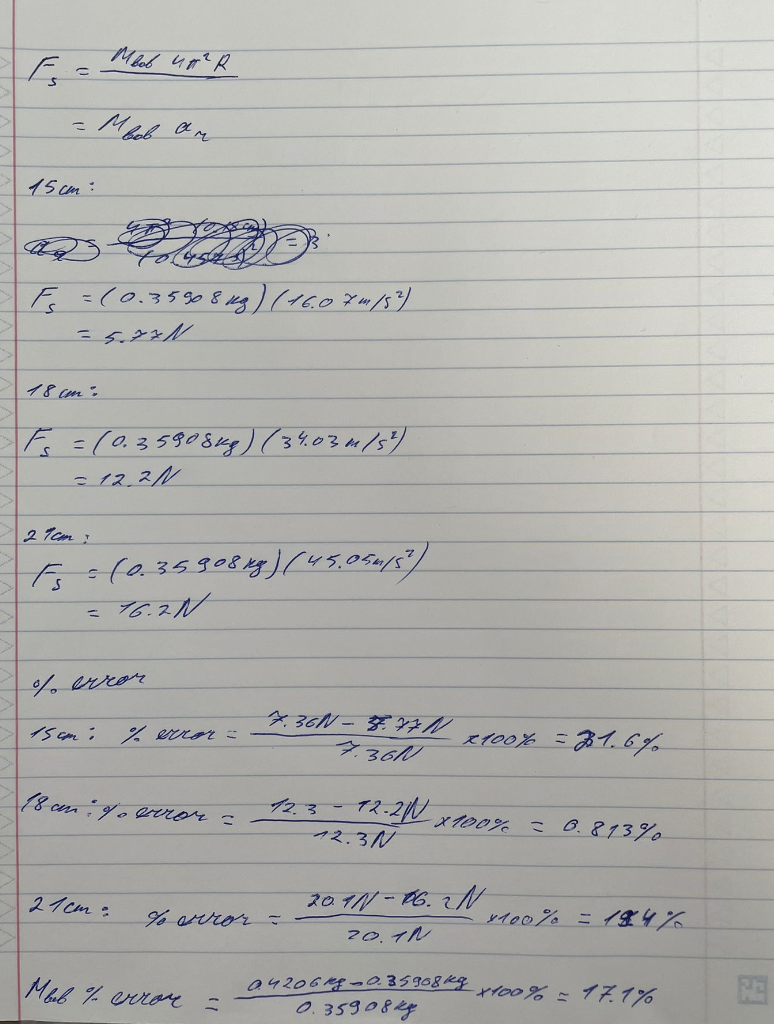 F_s = M_bob 4π²R
= M_bob a_r
15cm:
F_s = (0.35908kg)(16.07m/s²)
= 5.77N
18cm:
F_s = (0.35908kg)(34.03m/s²)
= 12.2N
21cm:
F_s = (0.35908kg)(45.05m/s²)
= 16.2N
% error
15cm: % error = (7.36N - 5.77N)/7.36N x100% = 21.6%
18cm: % error = (12.3 - 12.2N)/12.3N x100% = 0.813%
21cm: % error = (20.1N - 16.2N)/20.1N x100% = 19.4%
M_bob % error = (0.4206kg - 0.35908kg)/0.35908kg x100% = 17.1%